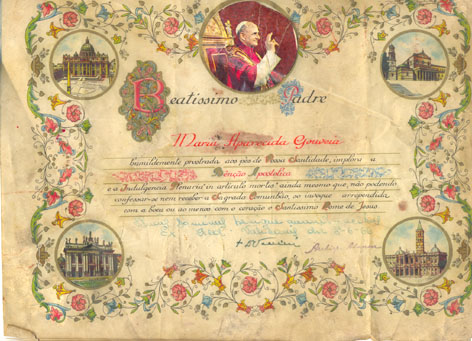 Beatissimo Padre
Maria Aparecida Gouveia
humildemente prostrada aos pés de Vossa Santidade, implora a
Bênção Apostólica
e a Indulgencia Plenaria "in articulo mortis" ainda mesmo que, não podendo
confessar-se nem receber a Sagrada Comunhão, se invoque arrependida
com a boca ou ao menos com o coração o Santissimo Nome de Jesus